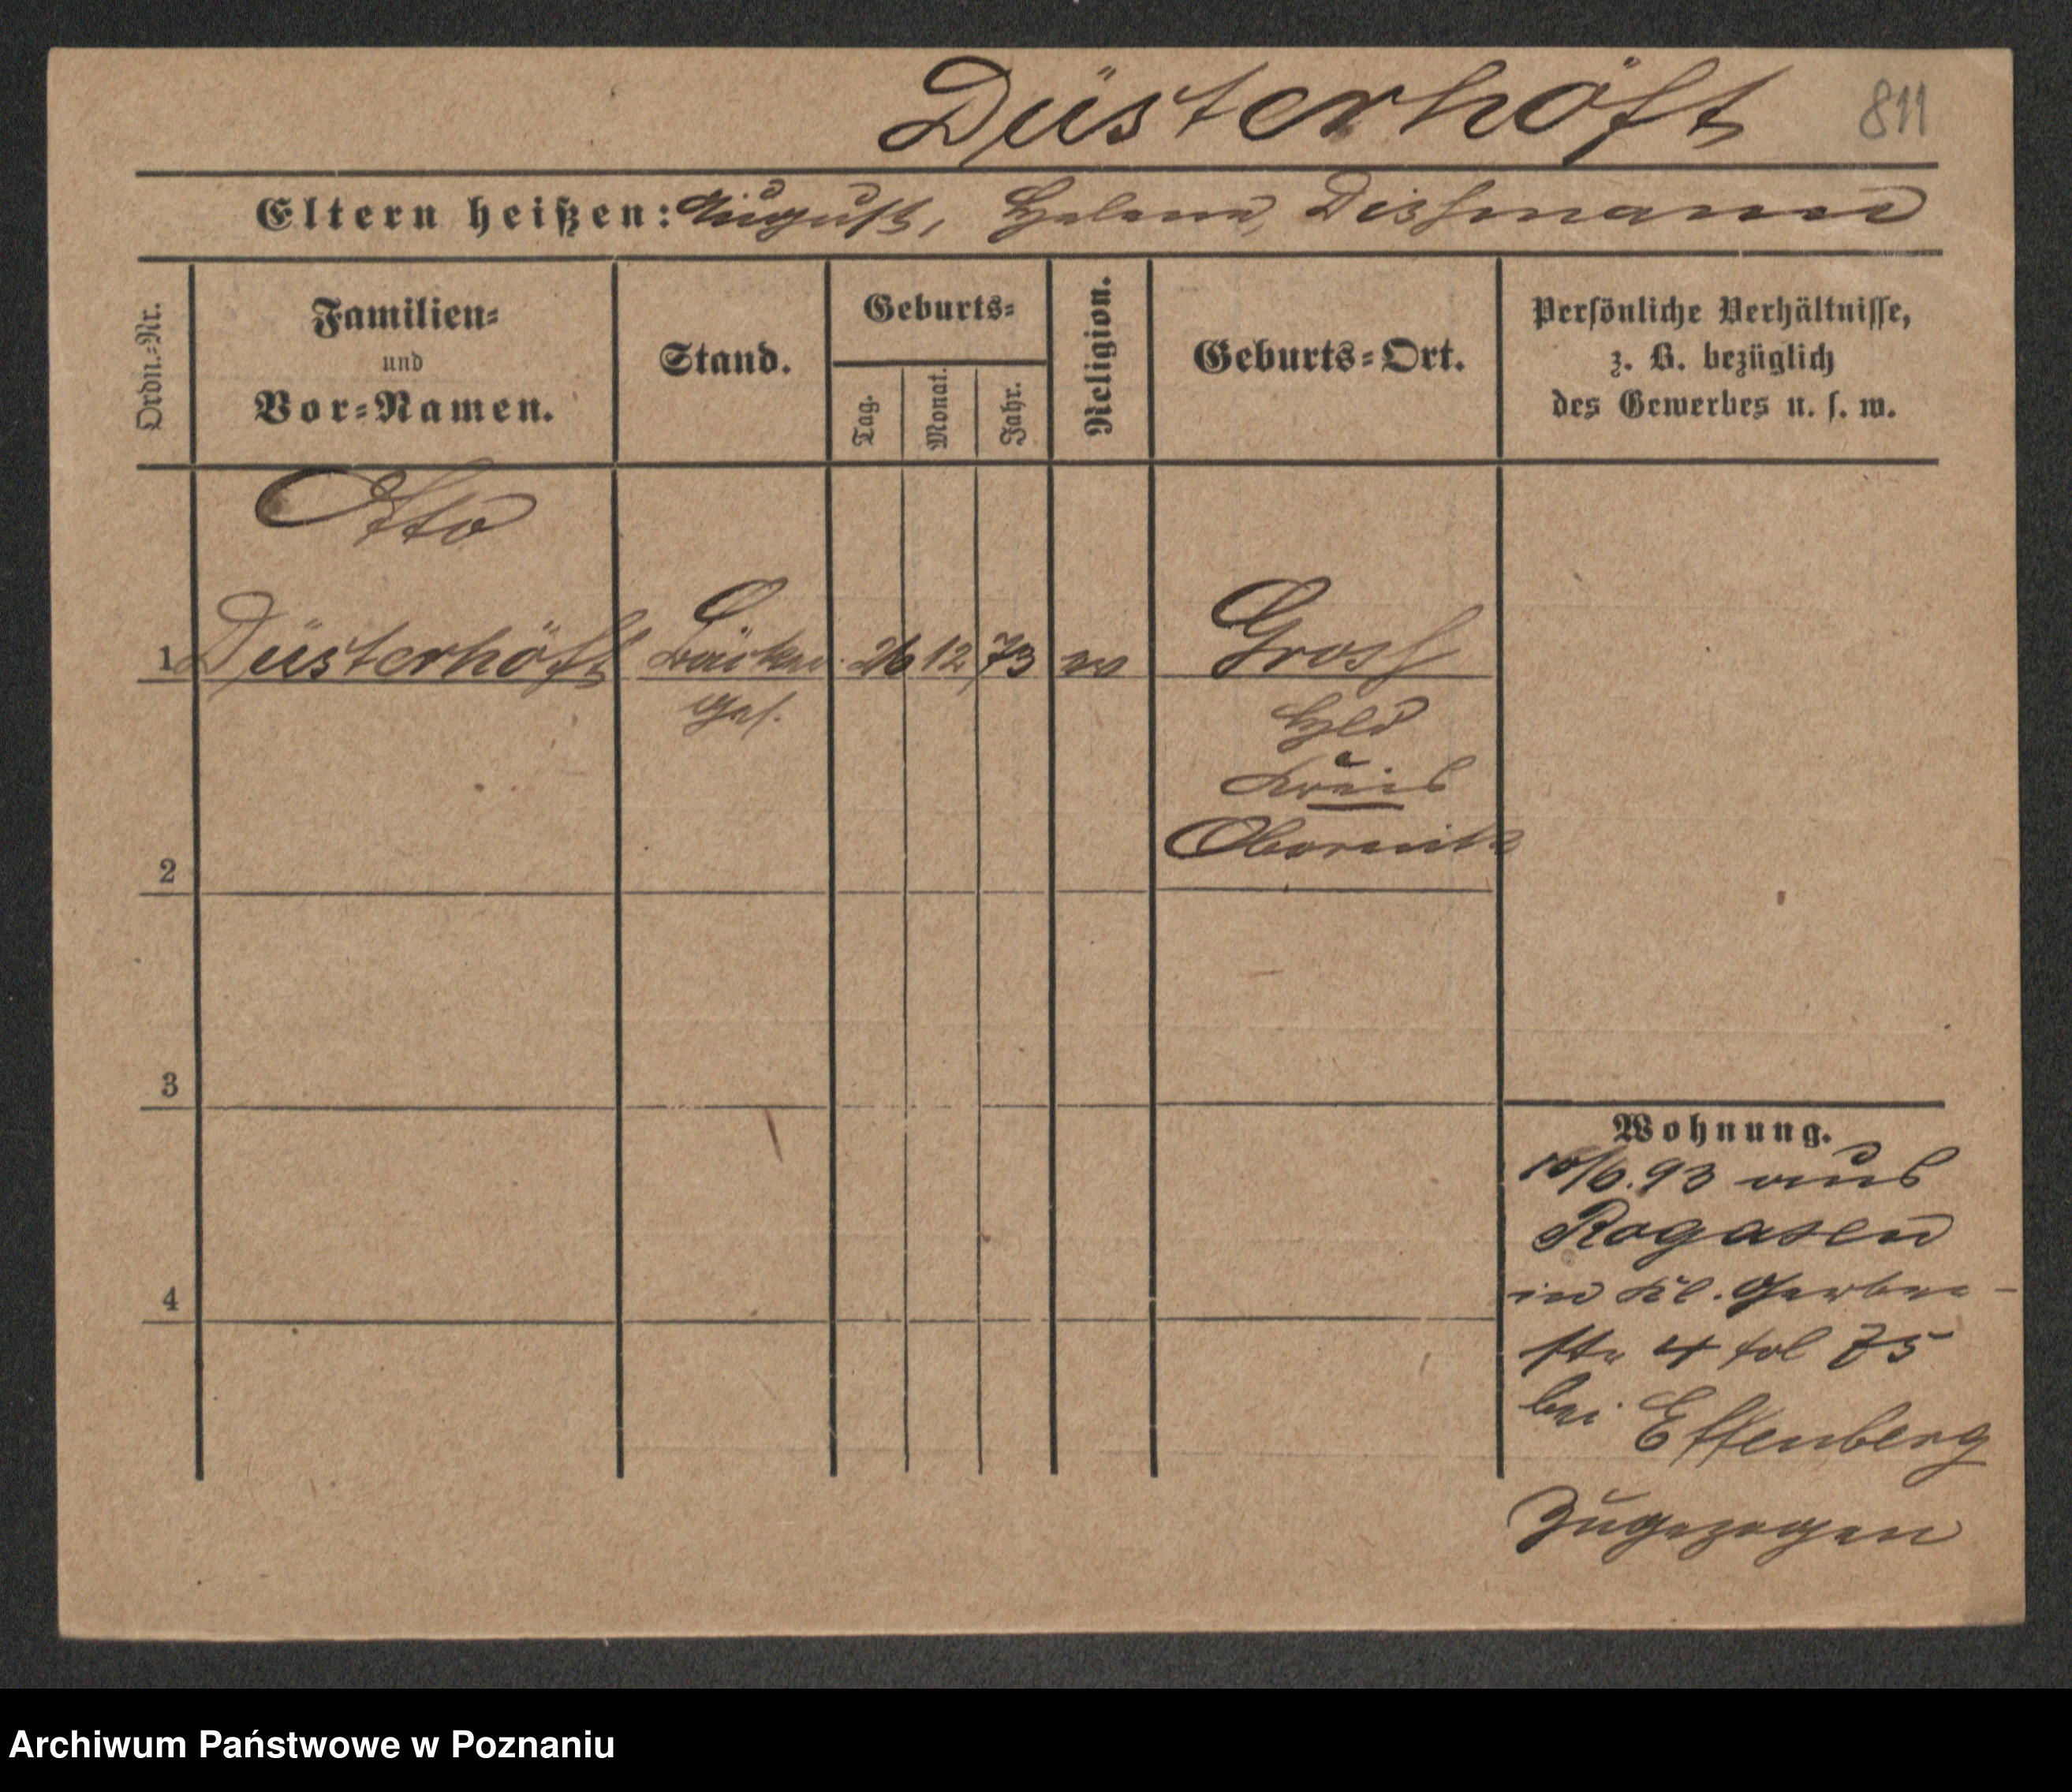 Düsterhöft 811
Eltern heißen: August, Helene, Dissmann
Ordn.-Nr.
Familien-
und
Vor-Namen.
Stand.
Geburts-
Tag.
Monat.
Jahr.
Religion.
Geburts-Ort.
Persönliche Verhältnisse,
z. B. bezüglich
des Gewerbes u. s. w.
Otto
1 Düsterhöft Bäcker 26 12 73 ev Gross
Ges. Hld
Kreis
Obornik
2
3
4
Wohnung.
10/6.93 aus
Rogasen
in Kl. Gerber-
str 4 fol 75
bei Effenberg
Zugezogen
Archiwum Państwowe w Poznaniu